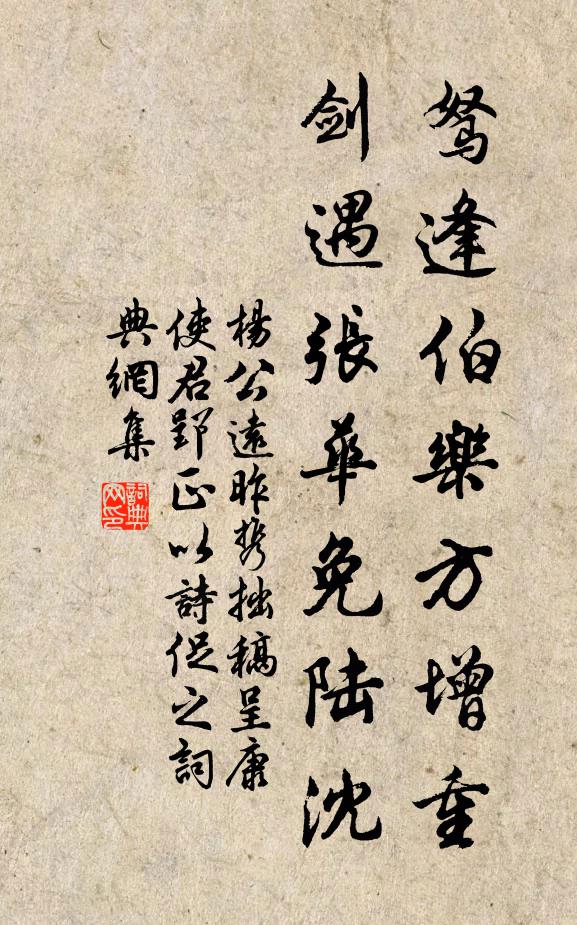 駑逢伯樂方增重
剑遇張華免陆沈
楊公遠昨携拙稿呈康
使君郢正以詩促之詞
典網集
詞典
网印